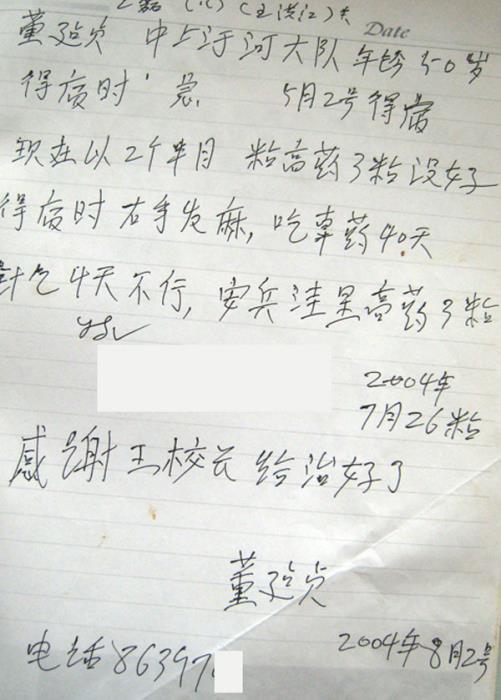 Date
董 贞 中上汙河大队 年令50岁
得病时 急 5月2号得病
现在以2个半月 粘高药3粘没好
得病时右手发麻, 吃草药40天
针气4天不行, 安兵洼黑高药3粘
2004年
7月26粘
感谢王校长给治好了
董 贞
2004年8月2号
电话86397